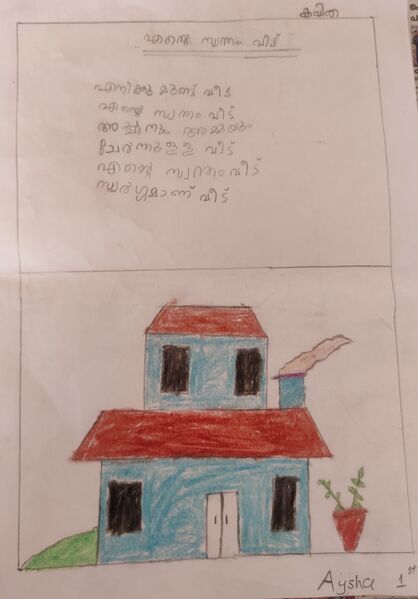 കവിത
എന്റെ സ്വന്തം വീട്
എനിക്കുമുണ്ട് വീട്
എന്റെ സ്വന്തം വീട്
അച്ഛനും അമ്മയും
ചേർന്നുള്ള വീട്
എന്റെ സ്വന്തം വീട്
സ്വർഗ്ഗമാണ് വീട്
Aysha 1st